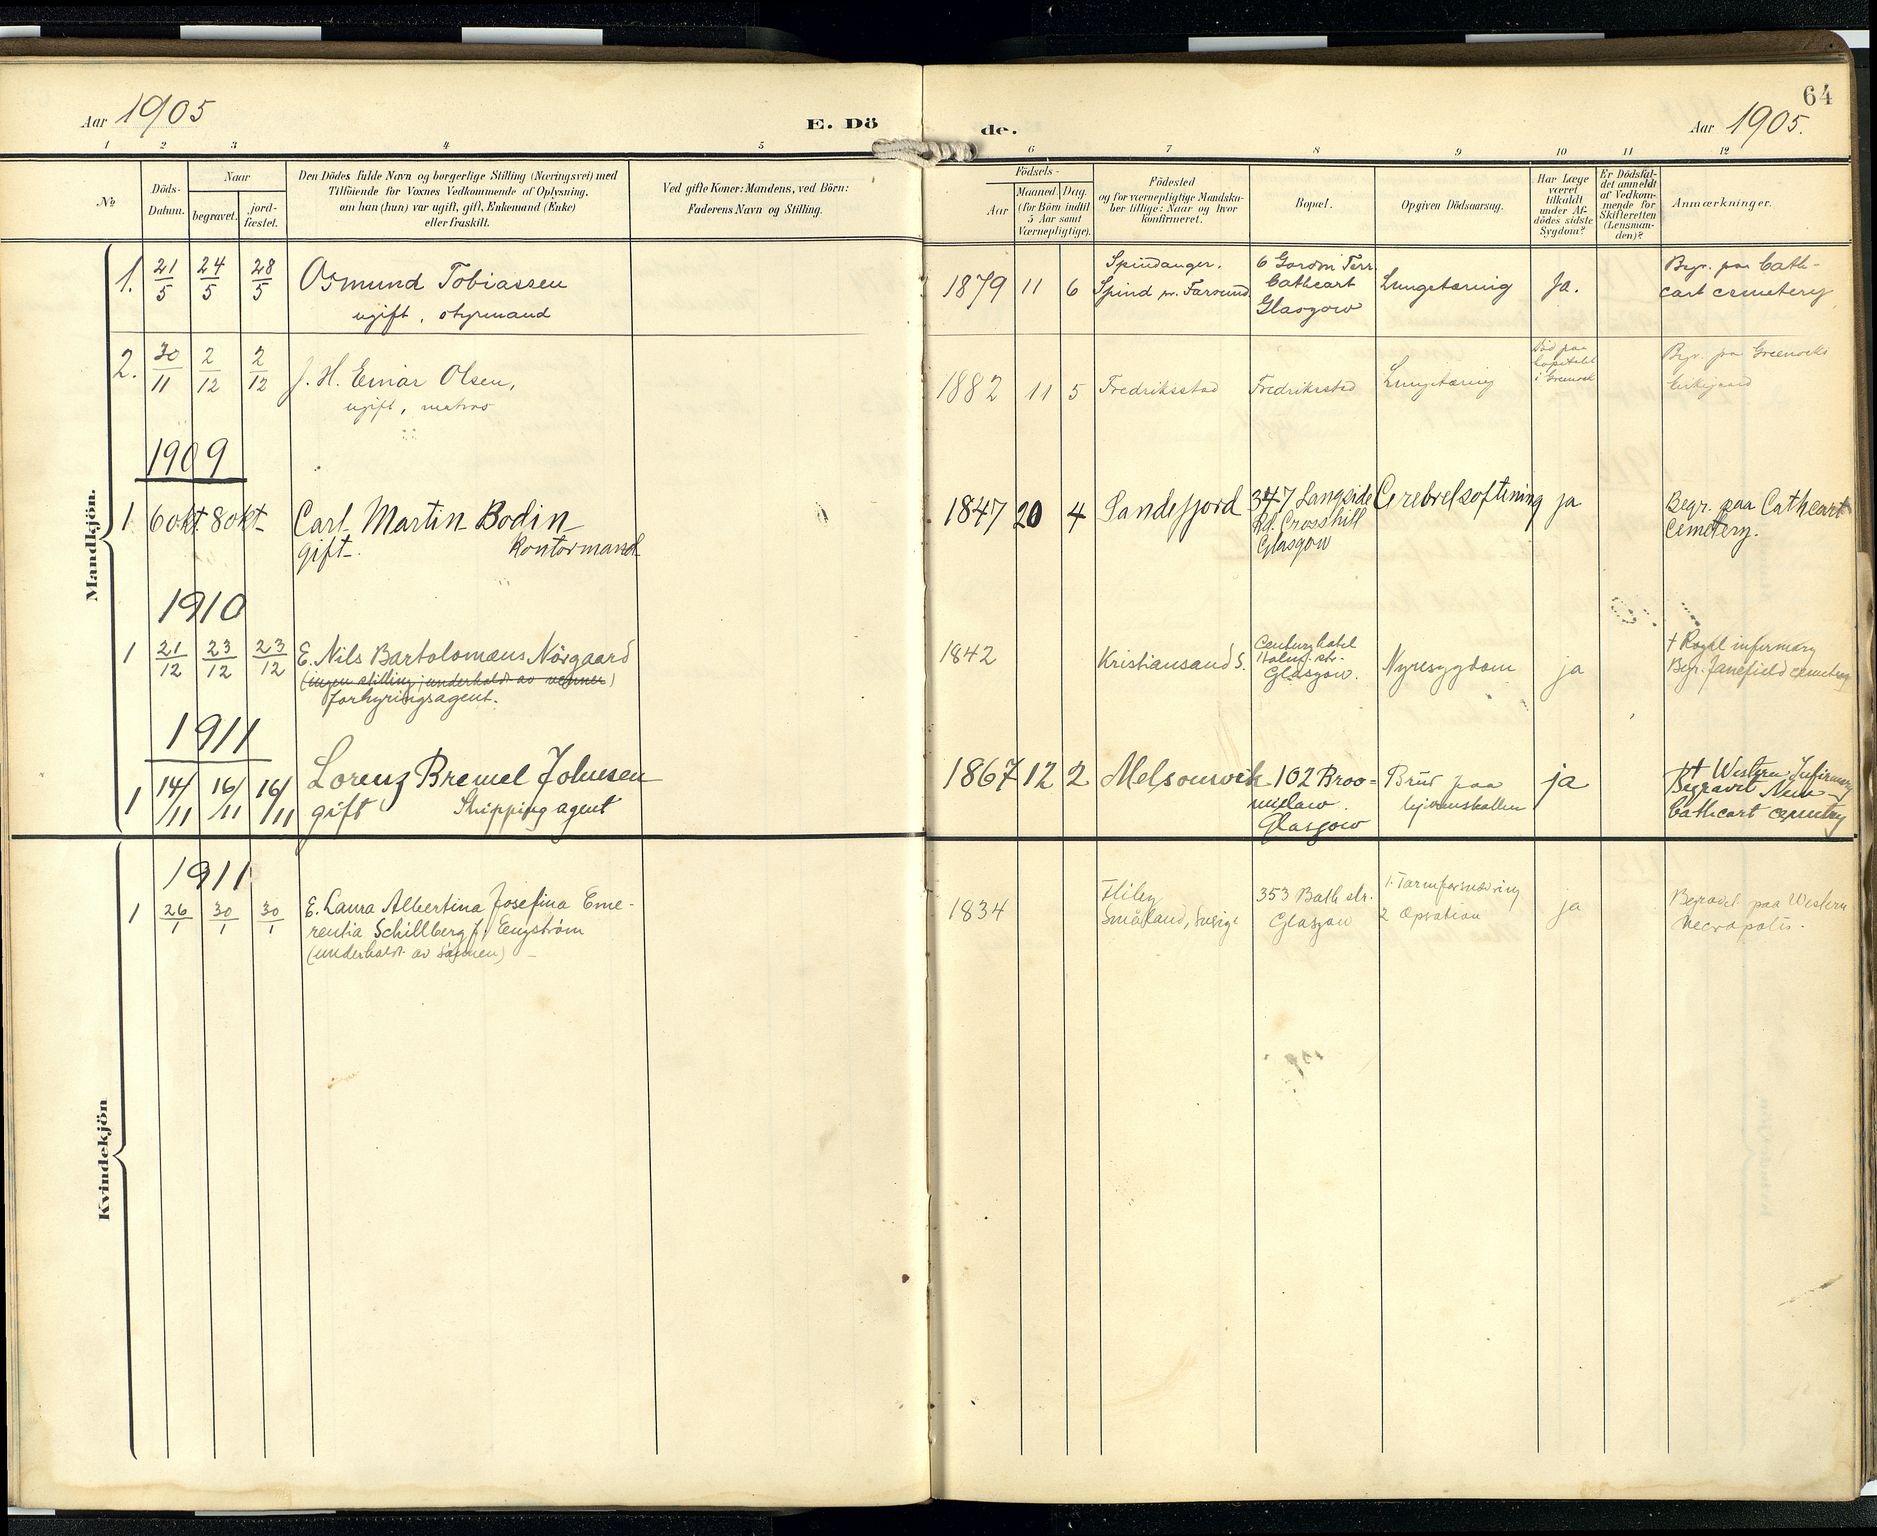 64
Aar 1905
E. Dö
de.
Aar 1905.
1 2 3 4 5 6 7 8 9 10 11 12
No
Döds-
Datum.
Naar
begravet.
jord-
fæstet.
Den Dödes fulde Navn og borgerlige Stilling (Næringsvei) med
Tilföiende for Voxnes Vedkommende af Oplysning.
om han (hun) var ugift, gift, Enkemand (Enke)
eller fraskilt.
Ved gifte Koner: Mandens, ved Börn:
Faderens Navn og Stilling.
Födsels-
Aar
Maaned.
Dag.
(for Börn indtil
5 Aar samt
Værnepligtige).
Födested
og for værnepligtige Mandska-
ber tillige: Naar og hvor
konfirmeret.
Bopæl.
Opgiven Dödsaarsag.
Har Læge
været
tilkaldt
under Af-
dödes sidste
Sygdom?
Er Dödsfal-
det anmeldt
af Vedkom-
mende for
Skifteretten
(Lensman-
den)?
Anmærkninger.
Mandkjön.
1. 21/5 24/5 28/5 Osmund Tobiassen
ugift, styrmand
1879 11 6
Spindanger.
Spind pr. Farsund.
6 Gordon Terr.
Cathcart
Glasgow
Lungetæring
Ja.
Begr. paa Cath-
cart cemetery
2. 30/11 2/12 2/12 J. H. Einar Olsen,
ugift, matros
1882 11 5 Fredriksstad Fredriksstad Lungetæring
Död paa
hospitalet
i Greenock
Begr. pa Greenocks
kirkegaard
1909
1 6 okt. 8 okt. Carl Martin Bodin
gift. Kontormand
1847 20 4 Sandefjord
347 Langside
Rd. Crosshill
Glasgow
Cerebrelsoftining ja
Begr. paa Cathcart
Cemetery.
1910
1 21/12 23/12 23/12 E. Nils Bartolomæus Nörgaard
(ingen stilling; underholdt av venner)
forhyringsagent.
1842 Kristiansand S.
Century hotel
Holm. str.
Glasgow.
Nyresygdom ja
† Royal infirmary
Begr. Janefield cemetery
1911
1 14/11 16/11 16/11 Lorenz Bremel Johnesen
gift Shipping agent
1867 12 2 Melsomvik
102 Broo=
mielaw.
Glasgow
Brud paa
hjerneskallen
ja
† Western Infirmary
Begravet New
Cathcart cemetery
Kvindekjön
1911
1 26/1 30/1 30/1 E. Laura Albertina Josefina Eme-
rentia Schillberg f. Engström
(underholdt av sönnen)
1834
Småland, Sverige
353 Bath str.
Glasgow
1. Tarmforsnævring
2 Opration
ja
Begravet paa Western
Necropolis.